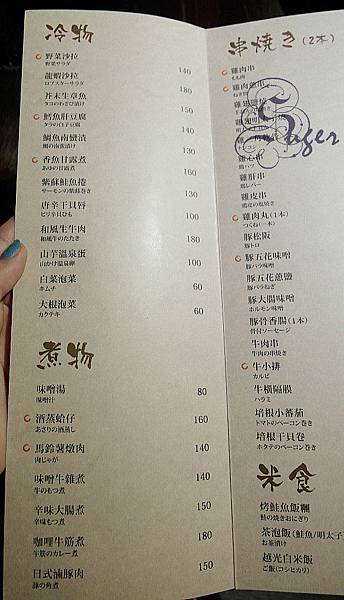 冷物
野菜沙拉
野菜サラダ
140
龍蝦沙拉
ロブスターサラダ
180
芥末生章魚
タコのわさび漬け
150
鱈魚肝豆腐
タラの白子豆腐
180
鯛魚南蠻漬
鯛の南蛮漬け
130
香魚甘露煮
あゆの甘露煮
160
紫蘇鮭魚捲
サーモンの紫蘇巻き
130
唐辛干貝唇
ピリ辛貝ひも
100
和風生牛肉
和風牛のたたき
180
山芋溫泉蛋
山かけ温泉卵
100
白菜泡菜
キムチ
60
大根泡菜
カクテキ
60
煮物
味噌湯
味噌汁
80
酒蒸蛤仔
あさりの酒蒸し
160
馬鈴薯燉肉
肉じゃが
140
味噌牛雜煮
牛のもつ煮
140
辛味大腸煮
辛味もつ煮
150
咖哩牛筋煮
牛筋のカレー煮
180
日式滷豚肉
豚の角煮
150
串焼き(2本)
雞肉串
もも肉
雞肉蔥串
ねぎ間
雞心串
鶏ハツ
雞肝串
鶏レバー
雞皮串
鶏皮の塩焼き
雞肉丸(1本)
つくね(一本)
豚松阪
豚トロ
豚五花味噌
豚バラ味噌
豚五花蔥鹽
豚バラねぎ
豚大腸味噌
ホルモン味噌
豚骨香腸(1本)
骨付ソーセージ
牛肉串
牛肉の串焼き
牛小排
カルビ
牛橫隔膜
ハラミ
培根小蕃茄
トマトのベーコン巻き
培根干貝卷
ホタテのベーコン巻き
米食
烤鮭魚飯糰
鮭の焼きおにぎり
茶泡飯(鮭魚/明太子)
お茶漬け
越光白米飯
ご飯(コシヒカリ)